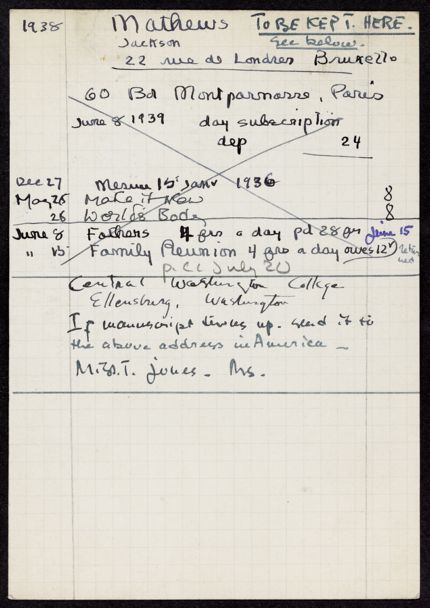 1938 Mathews TO BE KEPT HERE.
Jackson See below.
22 rue de Londres Bruxelles
60 Bd Montparnasse, Paris
June 8 1939 day subscription
dep 24
Dec 27 15 Janv 1936
May 26 Make it New 8
26 World's Body 8
June 8 Fathers 4 frs a day pd 28 frs June 15
" 15 Family Reunion 4 frs a day owes 12 returned
July 20
Central Washington College
Ellensburg, Washington
If manuscript turns up. send it to
the above address in America _
M. T. Jones. Ms.